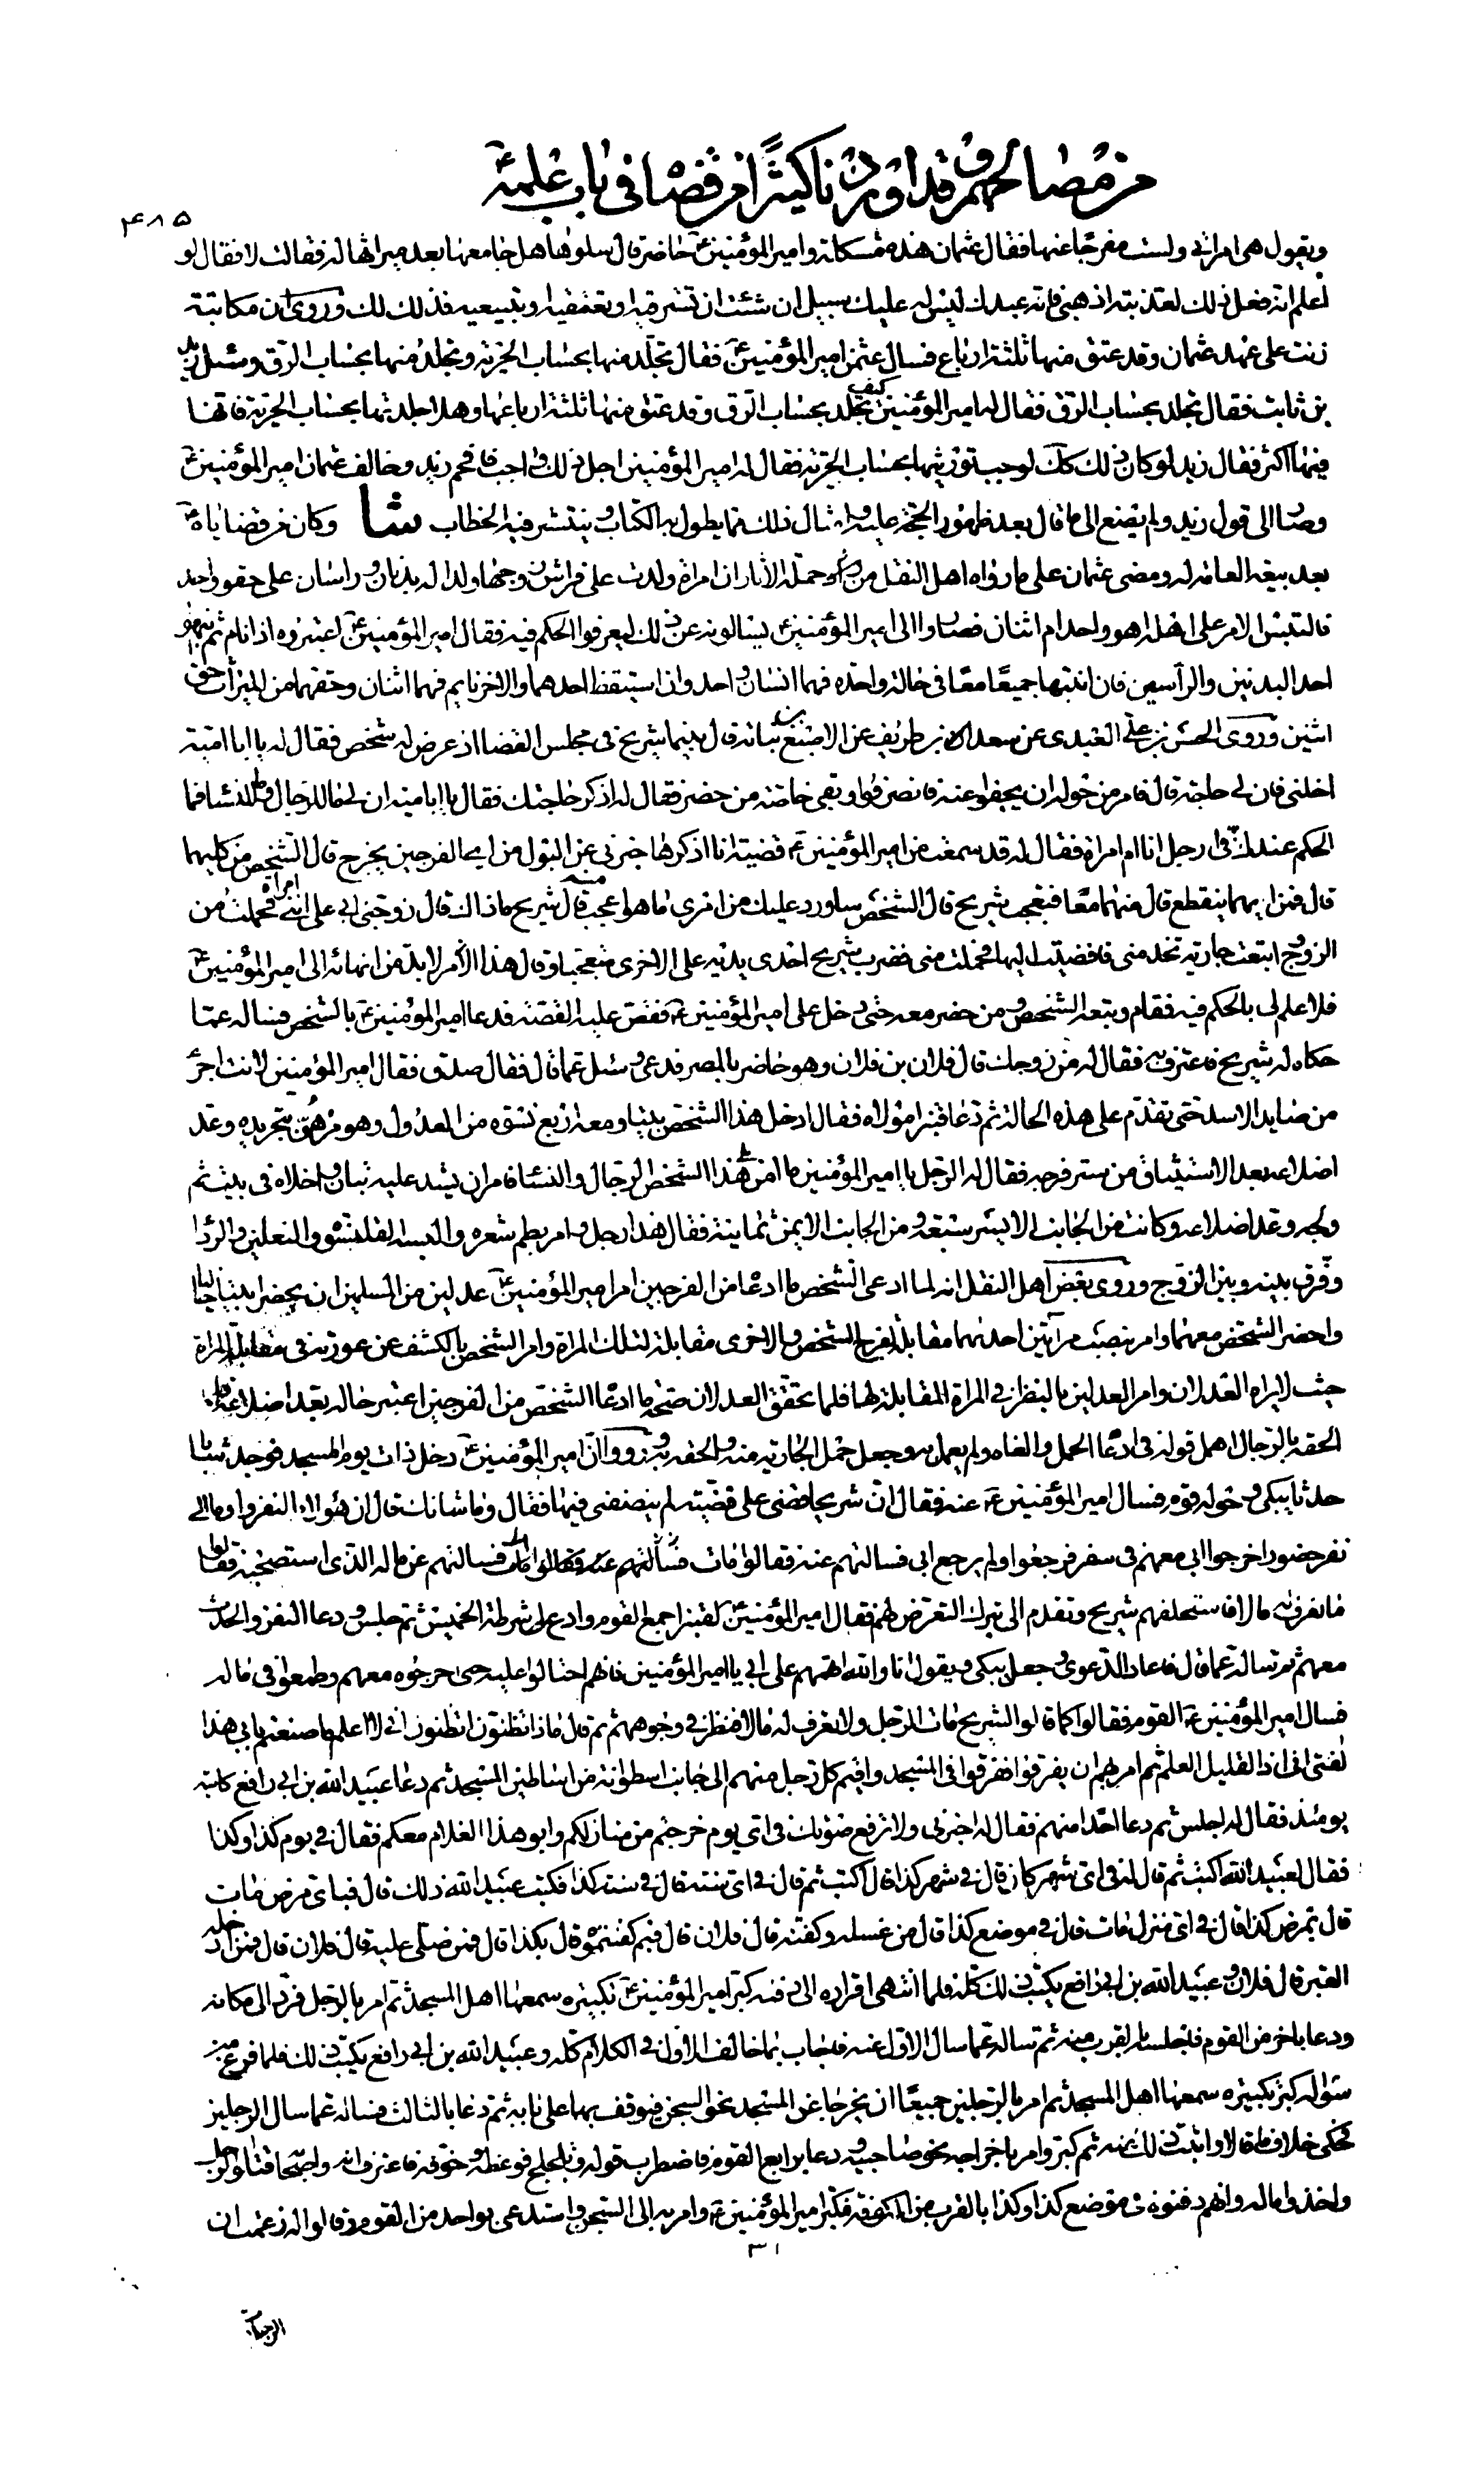 من مصالحهم وقد اوردنا كثيرا من قضاياه في باب علمه ع
۴۸۵
ويقول هي امرأتي ولست مفرجا عنها فقال عثمان هذه مشكلة وامير المؤمنين ع حاضر قال سلوها هل جامعها بعد ميراثها له فقالت لا فقال لو
أعلم انه فعل ذلك لعذبته اذهبي فانه عبدك ليس له عليك سبيل ان شئت ان تسترقيه او تعتقيه او تبيعيه فذلك لك وروي ان مكاتبة
زنت على عهد عثمان وقد عتق منها ثلثة ارباع فسال عثمن امير المؤمنين ع فقال تجلد منها بحساب الحرية وتجلد منها بحساب الرق وسئل زيد
بن ثابت فقال تجلد بحساب الرق فقال له امير المؤمنين ع كيف تجلد بحساب الرق وقد عتق منها ثلثة ارباعها وهلا جلدتها بحساب الحرية فانها
فيها اكثر فقال زيد لو كان ذلك كك لوجب توريثها بحساب الحرية فقال له امير المؤمنين اجل ذلك واجب فافحم زيد وخالف عثمان امير المؤمنين ع
وصار الى قول زيد ولم يصغ الى ما قال بعد ظهور الحجة عليه وامثال ذلك مما يطول به الكتاب وينتشر فيه الخطاب شا وكان من قضاياه ع
بعد بيعة العامة له ومضى عثمان على ما رواه اهل النقل من حملة الاثار ان امراة ولدت على فراش زوجها ولدا له بدنان وراسان على حقو واحد
فالتبس الامر على اهله اهو واحد ام اثنان فصاروا الى امير المؤمنين ع يسالونه عن ذلك ليعرفوا الحكم فيه فقال امير المؤمنين ع اعتبروه اذا نام ثم نبهوا
احد البدنين والرأسين فان انتبها جميعا معا في حالة واحدة فهما انسان واحد وان استيقظ احدهما والاخر نايم فهما اثنان وحقهما من الميراث حق
اثنين وروى الحسن بن علي العبدي عن سعد بن طريف عن الاصبغ بن نباتة قال بينما شريح في مجلس القضا اذ عرض له شخص فقال له يا ابا امية
اخلني فان لي حاجة قال فامر من حوله ان يخفوا عنه فانصرفوا وبقي خاصة من حضر فقال له اذكر حاجتك فقال يا ابا امية ان لي ما للرجال وما للنسا فما
الحكم عندك في ارجل انا ام امراة فقال له قد سمعت من امير المؤمنين ع قضية انا اذكرها خبرني عن البول من اي الفرجين يخرج قال الشخص من كليهما
قال فمن ايهما ينقطع قال منهما معا فتعجب شريح قال الشخص ساورد عليك من امري ما هو اعجب منه قال شريح ما ذاك قال زوجني ابي على انني امراة فحملت من
الزوج وابتعت جارية تخدمني فافضيت اليها فحملت مني فضرب شريح احدى يديه على الاخرى متعجبا وقال هذا الأمر لا بد من انهائه الى امير المؤمنين ع
فلا علم لي بالحكم فيه فقام وتبعه الشخص ومن حضر معه حتى دخل على امير المؤمنين ع فقص عليه القصة فدعا امير المؤمنين ع بالشخص فساله عما
حكاه له شريح فاعترف به فقال له من زوجك قال فلان بن فلان وهو حاضر بالمصر فدعي وسئل عما قال فقال صدق فقال امير المؤمنين لانت اجرئ
من صايد الاسد حتى تقدم على هذه الحالة ثم دعا قنبرا مولاه فقال ادخل هذا الشخص بيتا ومعه اربع نسوة من العدول ومرهن بتجريده وعد
اضلاعه بعد الاستيثاق من ستر فرجه فقال له الرجل يا امير المؤمنين ما امن على هذا الشخص الرجال والنسا فامر ان يشد عليه تبان واخلاه في بيت ثم
ولجه وعد اضلاعه وكانت من الجانب الايسر سبعة ومن الجانب الايمن ثمانية فقال هذا رجل وامر بطم شعره والبسه القلنسوة والنعلين والردا
وفرق بينه وبين الزوج وروى بعض اهل النقل انه لما ادعى الشخص ما ادعا من الفرجين امر امير المؤمنين ع عدلين من المسلمين ان يحضرا بيتا خاليا
واحضر الشخص معهما وامر بنصب مرآتين احديهما مقابلة لفرج الشخص والاخرى مقابلة لتلك المرآة وامر الشخص بالكشف عن عورته في مقابلة المرآة
حيث لا يراه العدلان وامر العدلين بالنظر في المرآة المقابلة لها فلما تحقق العدلان صحة ما ادعا الشخص من الفرجين اعتبر حاله بعد اضلاعه فلما
الحقه بالرجال اهمل قوله في ادعا الحمل والغاه ولم يعمل به وجعل حمل الجارية منه والحقه به ورووا ان امير المؤمنين ع دخل ذات يوم المسجد فوجد شابا
حدثا يبكي وحوله قوم فسال امير المؤمنين ع عنه فقال ان شريحا قضى على قضية لم ينصفني فيها فقال وما شانك قال ان هؤلاء النفر واوما الى
نفر حضور اخرجوا ابي معهم في سفر فرجعوا ولم يرجع ابي فسالتهم عنه فقالوا مات فسالتهم عن ماله الذي استصحبه فقالوا
ما نعرف له مالا فاستحلفهم شريح وتقدم الى بترك التعرض لهم فقال امير المؤمنين ع لقنبر اجمع القوم وادع لي شرطة الخميس ثم جلس ودعا النفر والحدث
معهم ثم ساله عما قال فاعاد الدعوى وجعل يبكي ويقول انا والله اتهمهم على ابي يا امير المؤمنين فانهم احتالوا عليه حتى اخرجوه معهم وطمعوا في ماله
فسال امير المؤمنين ع القوم فقالوا كما قالوا لشريح مات الرجل ولا نعرف له مالا فنظر في وجوههم ثم قال ماذا تظنون اتظنون اني لا اعلم ما صنعتم بابي هذا
الفتى اني اذا لقليل العلم ثم امر بهم ان يفرقوا ففرقوا في المسجد واقيم كل رجل منهم الى جانب اسطوانة من اساطين المسجد ثم دعا عبيد الله بن ابي رافع كاتبه
يومئذ فقال له اجلس ثم دعا احدا منهم فقال له اخبرني ولا ترفع صوتك في اي يوم خرجتم من منازلكم وابو هذا الغلام معكم فقال في يوم كذا وكذا
فقال لعبيد الله اكتب ثم قال له في اي شهر كان قال في شهر كذا قال اكتب ثم قال في اي سنة قال في سنة كذا فكتب عبيد الله ذلك قال فباي مرض مات
قال بمرض كذا قال في اي منزل مات قال في موضع كذا قال من غسله وكفنه قال فلان قال فبم كفنتموه قال بكذا قال فمن صلى عليه قال فلان قال فمن ادخله
القبر قال فلان وعبيد الله بن ابي رافع يكتب ذلك كله فلما انتهى اقراره الى دفنه كبر امير المؤمنين ع تكبيرة سمعها اهل المسجد ثم امر بالرجل فرد الى مكانه
ودعا باخر من القوم فاجلسه بالقرب منه ثم ساله عما سال الاول عنه فاجاب بما خالف الاول في الكلام كله وعبيد الله بن ابي رافع يكتب ذلك فلما فرغ من
سؤاله كبر تكبيرة سمعها اهل المسجد ثم امر بالرجلين جميعا ان يخرجا عن المسجد نحو السجن فيوقف بهما على بابه ثم دعا بالثالث فساله عما سال الرجلين
فحكى خلاف ما قالا واثبت ذلك عنه ثم كبر وامر باخراجه نحو صاحبيه ودعا برابع القوم فاضطرب قوله وتلجلج فوعظه وخوفه فاعترف انه واصحابه قتلوا الرجل
واخذوا ماله وانهم دفنوه في موضع كذا وكذا بالقرب من الكوفة فكبر امير المؤمنين ع وامر به الى السجن واستدعى بواحد من القوم وقال له زعمت ان
۳۱
الرجل